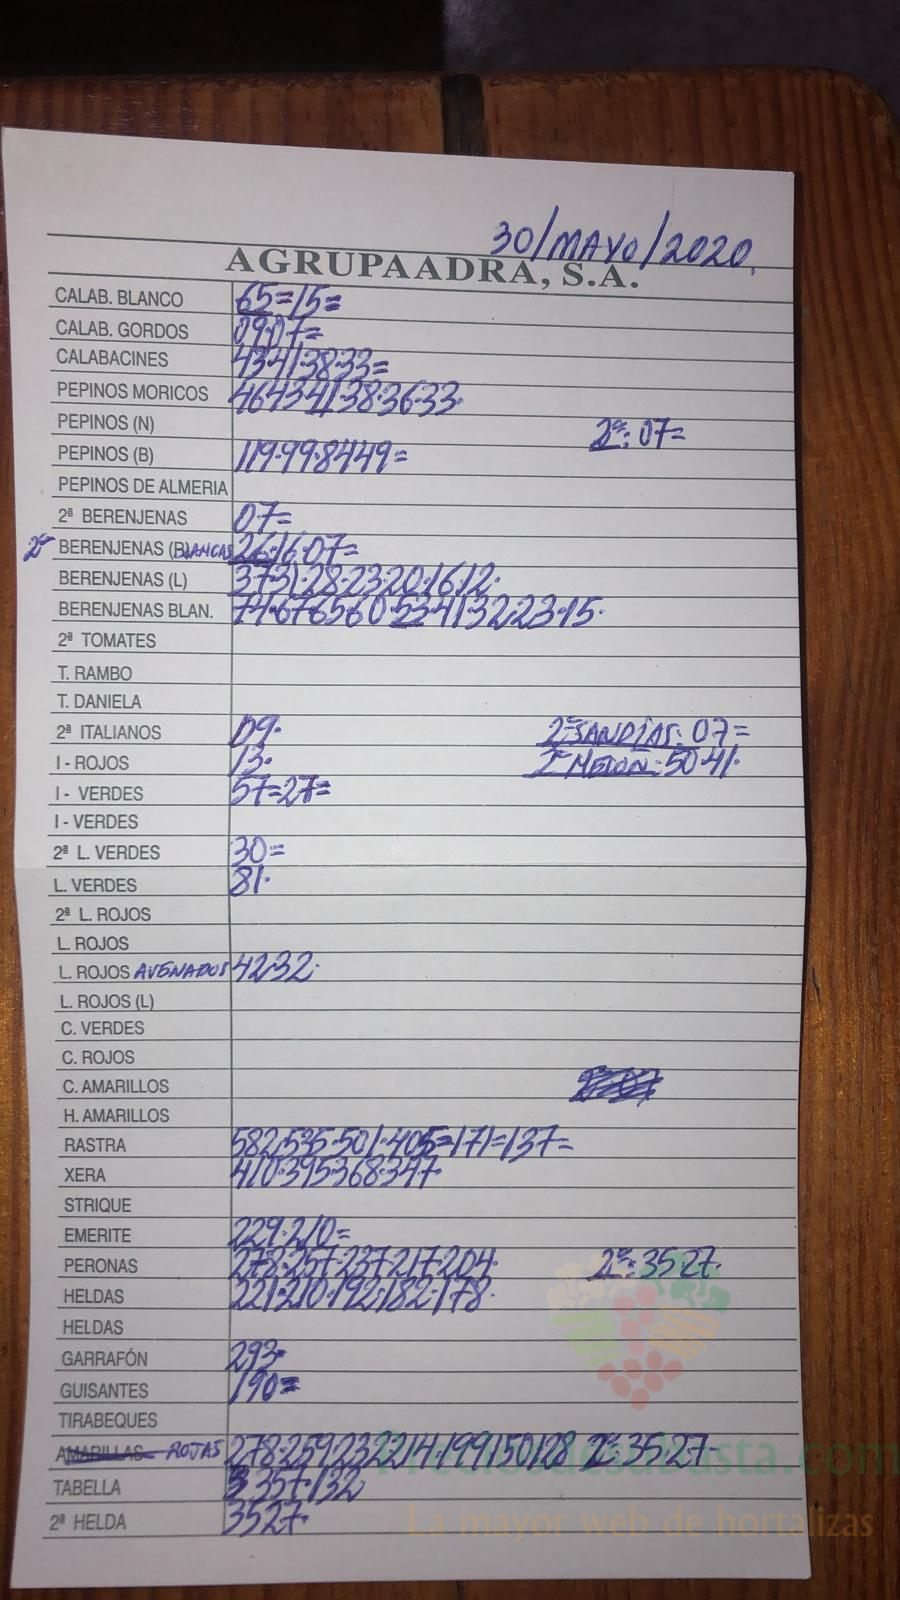 30/MAYO/2020.
AGRUPAADRA, S.A.
CALAB. BLANCO 65=15=
CALAB. GORDOS 09·07=
CALABACINES 43·41·38·33=
PEPINOS MORICOS 46·43·41·38·36·33·
PEPINOS (N) 2ª: 07=
PEPINOS (B) 119·99·84·49=
PEPINOS DE ALMERIA
2ª BERENJENAS 07=
2ª BERENJENAS (BLANCAS 26·16·07=
BERENJENAS (L) 37·31·28·23·20·16·12·
BERENJENAS BLAN. 74·67·65·60·53·41·32·23·15·
2ª TOMATES
T. RAMBO
T. DANIELA
2ª ITALIANOS 09· 2ª SANDÍAS: 07=
I - ROJOS 13· 2ª MELON: 50·41·
I - VERDES 57=27=
I - VERDES
2ª L. VERDES 30=
L. VERDES 81·
2ª L. ROJOS
L. ROJOS
L. ROJOS AVENADOS 42·32·
L. ROJOS (L)
C. VERDES
C. ROJOS
C. AMARILLOS
H. AMARILLOS
RASTRA 582·535·501·405=171=137=
XERA 410·395·368·347·
STRIQUE
EMERITE 229·210=
PERONAS 278·257·237·217·204· 2ª: 35·27·
HELDAS 221·210·192·182·178·
HELDAS
GARRAFÓN 293·
GUISANTES 190=
TIRABEQUES
AMARILLAS ROJAS 278·259·232·214·199·150·128 2ª: 35·27·
TABELLA 357·132
2ª HELDA 35·27·
Preciosdesubasta.com
La mayor web de hortalizas